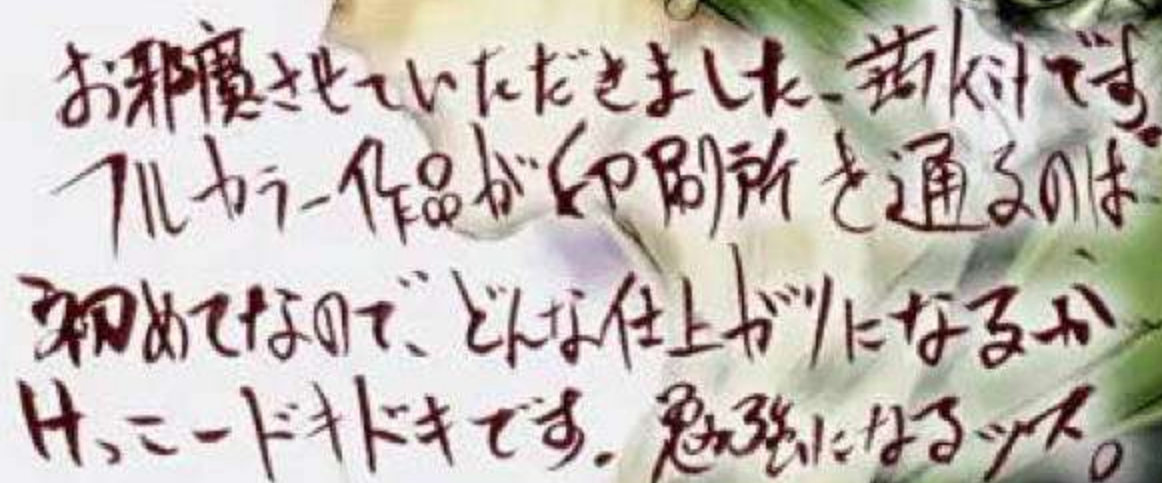 お邪魔させていただきました、です。
フルカラー作品が印刷所を通るのは
初めてなので、どんな仕上がりになるか
けっこードキドキです。勉強になるッス。